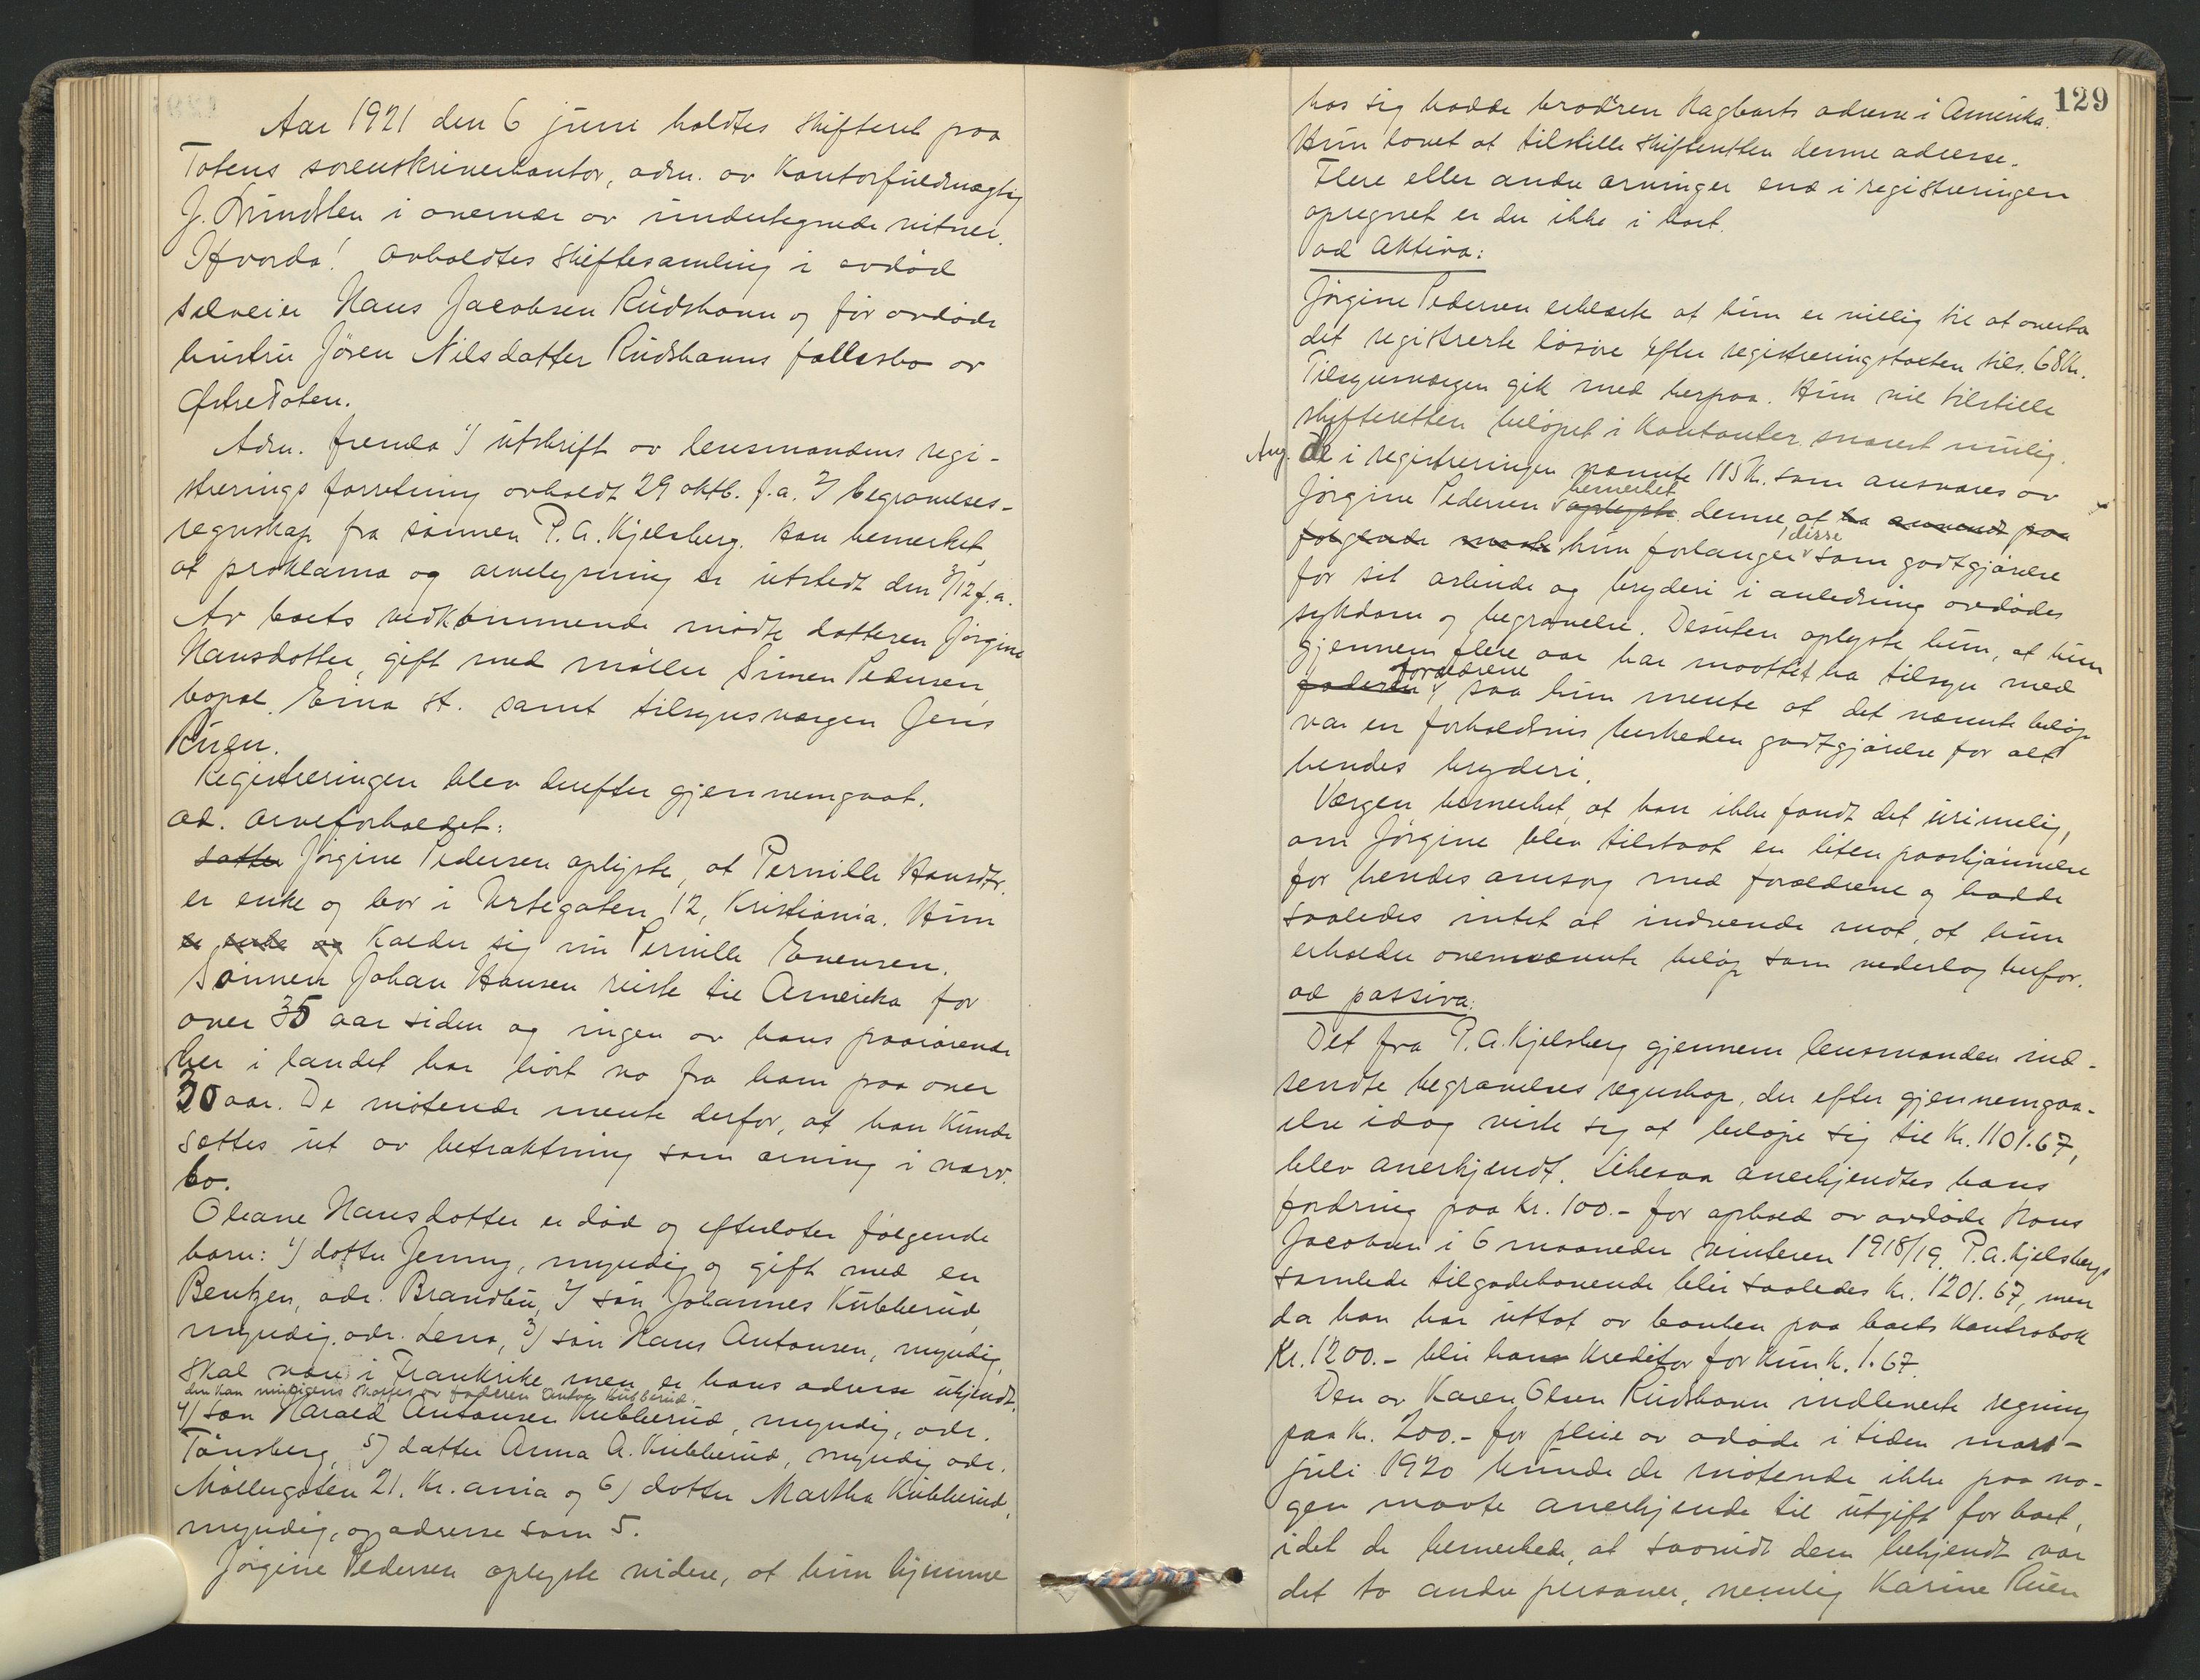 Aar 1921 den 6 juni holdtes skifteret paa
Totens sorenskriverkontor, adm. av Kontorfuldmægtig
J. Lundsten i overvær av undertegnede vitner.
Hvorda! avholdtes skiftesamling i avdød
selveier Hans Jacobsen Rudshavn og før avdøde
hustru Jøren Nilsdatter Rudshavns fællesbo av
Østre Toten.
Adm. fremla 1) utskrift av lensmandens regi-
strerings forretning avholdt 29 oktb. f.a. 2) begravelses-
regnskap fra sønnen P.A. Kjelsberg. Han bemerket
at proklama og arvelysning er utstedt den 3/12 f.a.
Av boets vedkommende mødte datteren Jørgine
Hansdatter, gift med møller Simen Pedersen,
bopæl Eina st. samt tilsynsværgen Jens
Ruen.
Registreringen blev derefter gjennemgaat.
ad. arveforholdet:
datter Jørgine Pedersen oplyste, at Pernille Hansdtr.
er enke og bor i Urtegaten 12, Kristiania. Hun
er enke og kalder sig nu Pernille Evensen.
Sønnen Johan Hansen reiste til Amerika for
over 35 aar siden og ingen av hans paarørende
her i landet har hørt no fra ham paa over
30 aar. De møtende mente derfor, at han kunde
sættes ut av betraktning som arving i nærv.
bo.
Oleane Hansdatter er død og efterlater følgende
barn: 1) datter Jenny, myndig og gift med en
Bentzen, adr. Brandbu, 2) søn Johannes Kubberud,
myndig, adr. Lena, 3) søn Hans Antonsen, myndig,
skal være i Frankrike men er hans adresse ukjendt,
den kan muligens skaffes av faderen Anton Kubberud.
4) søn Harald Antonsen Kubberud, myndig, adr.
Tønsberg, 5) datter Anna A. Kubberud, myndig adr.
Møllergaten 21, Kr.ania og 6) datter Martha Kubberud,
myndig, og adresse som 5.
Jørgine Pedersen oplyste videre, at hun hjemme
129
hos sig hadde brodren Hagbarts adresse i Amerika.
Hun lovet at tilstille skifteretten denne adresse.
Flere eller andre arvinger end i registreringen
opregnet er der ikke i boet.
ad Aktiva:
Jørgine Pedersen erklærte at hun er villig til at overta
det registrerte løsøre efter registreringstaxten tils. 68 kr.
Tilsynsværgen gik med herpaa. Hun vil tilstille
skifteretten beløpet i kontanter snarest mulig.
Ang. de i registreringen nævnte 115 kr. som ansvares av
Jørgine Pedersen oplyste bemerket denne, at ha anvendt paa
følgende maate hun forlanger disse som godtgjørelse
for sit arbeide og bryderi i anledning avdødes
sykdom og begravelse. Desuten oplyste hun, at hun
gjennem flere aar har maattet ha tilsyn med
faderen forældrene saa hun mente at det nævnte beløp
var en forholdsvis beskeden godtgjørelse for alt
hendes bryderi.
Værgen bemerket, at han ikke fandt det urimelig,
om Jørgine blev tilstaat en liten paaskjønnelse
for hendes omsorg med forældrene og hadde
saaledes intet at indvende mot, at hun
erholder ovennævnte beløp som vederlag herfor.
ad passiva:
Det fra P.A. Kjelsberg gjennem lensmanden ind-
sendte begravelses regnskap, der efter gjennemgaa-
else idag viste sig at beløpe sig til kr. 1101.67,
blev anerkjendt. Likesaa anerkjendtes hans
fordring paa kr. 100.- for ophold av avdøde Hans
Jacobsen i 6 maaneder vinteren 1918/19. P.A. Kjelsbergs
samlede tilgodehavende blir saaledes kr. 1201.67, men
da han har uttat av banken paa boets kontrabok
Kr. 1200.- blir hans kreditor for kun k. 1.67.
Den av Karen Olsen Rudshavn indleverte regning
paa kr. 200.- for pleie av adøde i tiden mars-
juli 1920 kunde de møtende ikke paa no-
gen maate anerkjende til utgift for boet,
idet de bemerkede, at saavidt dem bekjendt var
det to andre personer, nemlig Karine Ruen